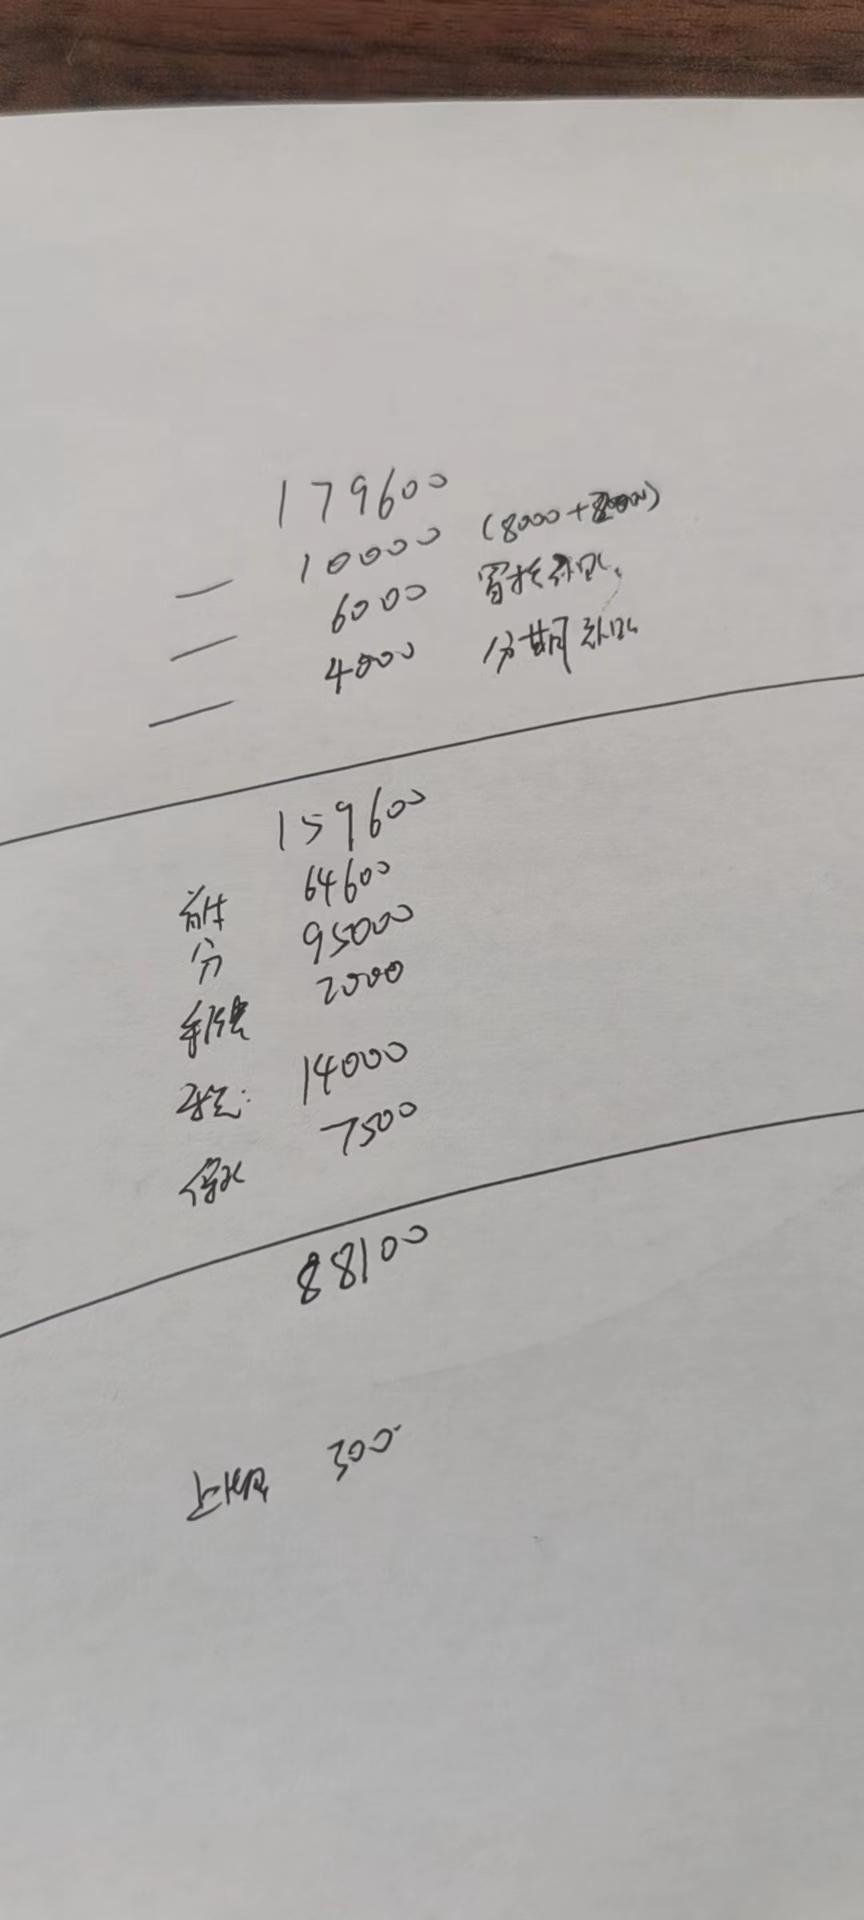 179600
— 10000 (8000+2000)
— 6000 置换补贴
— 4000 分期补贴
159600
首付 64600
分 95000
手续费 2000
税: 14000
保险 7500
88100
上牌 300